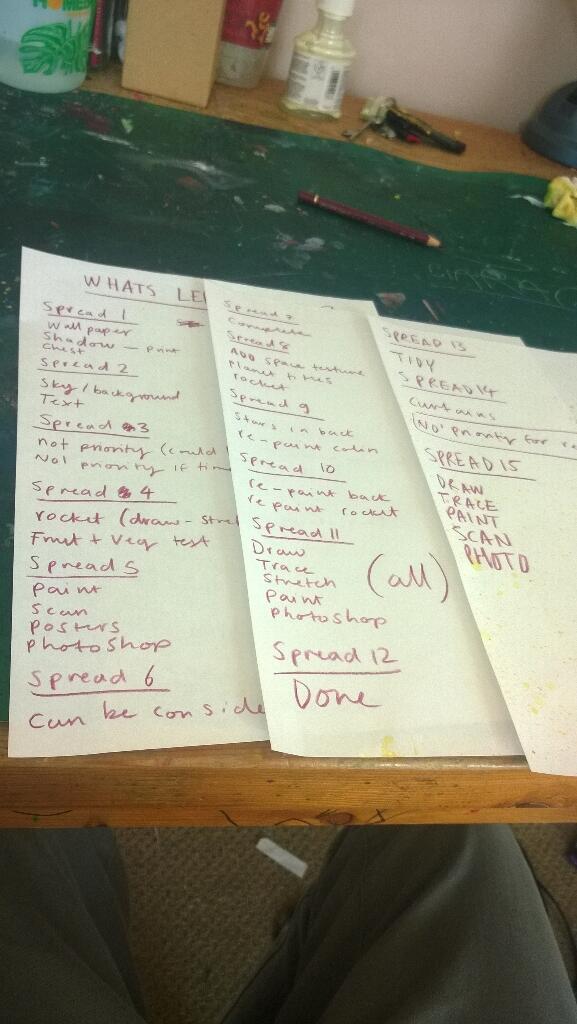 WHATS LE
Spread 1
Wallpaper
Shadow - print
Chest
Spread 2
Sky/background
Text
Spread 3
not priority (could
No1 priority if tim
Spread 4
rocket (draw - stre
Fruit + Veg test
Spread 5
paint
scan
posters
photoshop
Spread 6
can be conside
Spread 7
Complete
Spread 8
ADD space texture
Planet titles
rocket
Spread 9
Stars in back
re-paint colin
Spread 10
re-paint back
repaint rocket
Spread 11
Draw
Trace
Stretch
(all)
paint
photoshop
Spread 12
Done
SPREAD 13
TIDY
SPREAD 14
curtains
(No1 priority for re
SPREAD 15
DRAW
TRACE
PAINT
SCAN
PHOTO